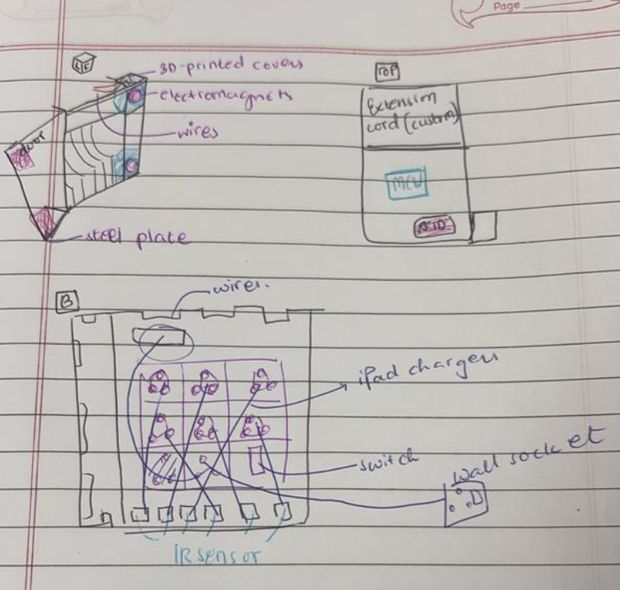 Page
3D-printed covers
electromagnets
wires
door
steel plate
TOP
Extension
cord (custom)
MCU
B
wires.
iPad chargers
switch
wall socket
IR sensor